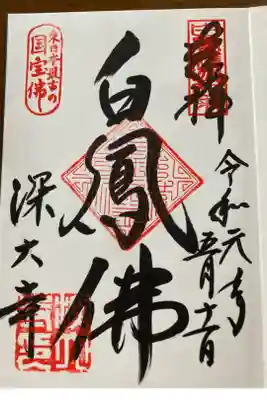 奉拝
令和元年
五月十一日
白鳳佛
東日本最古の
国宝佛
深大寺